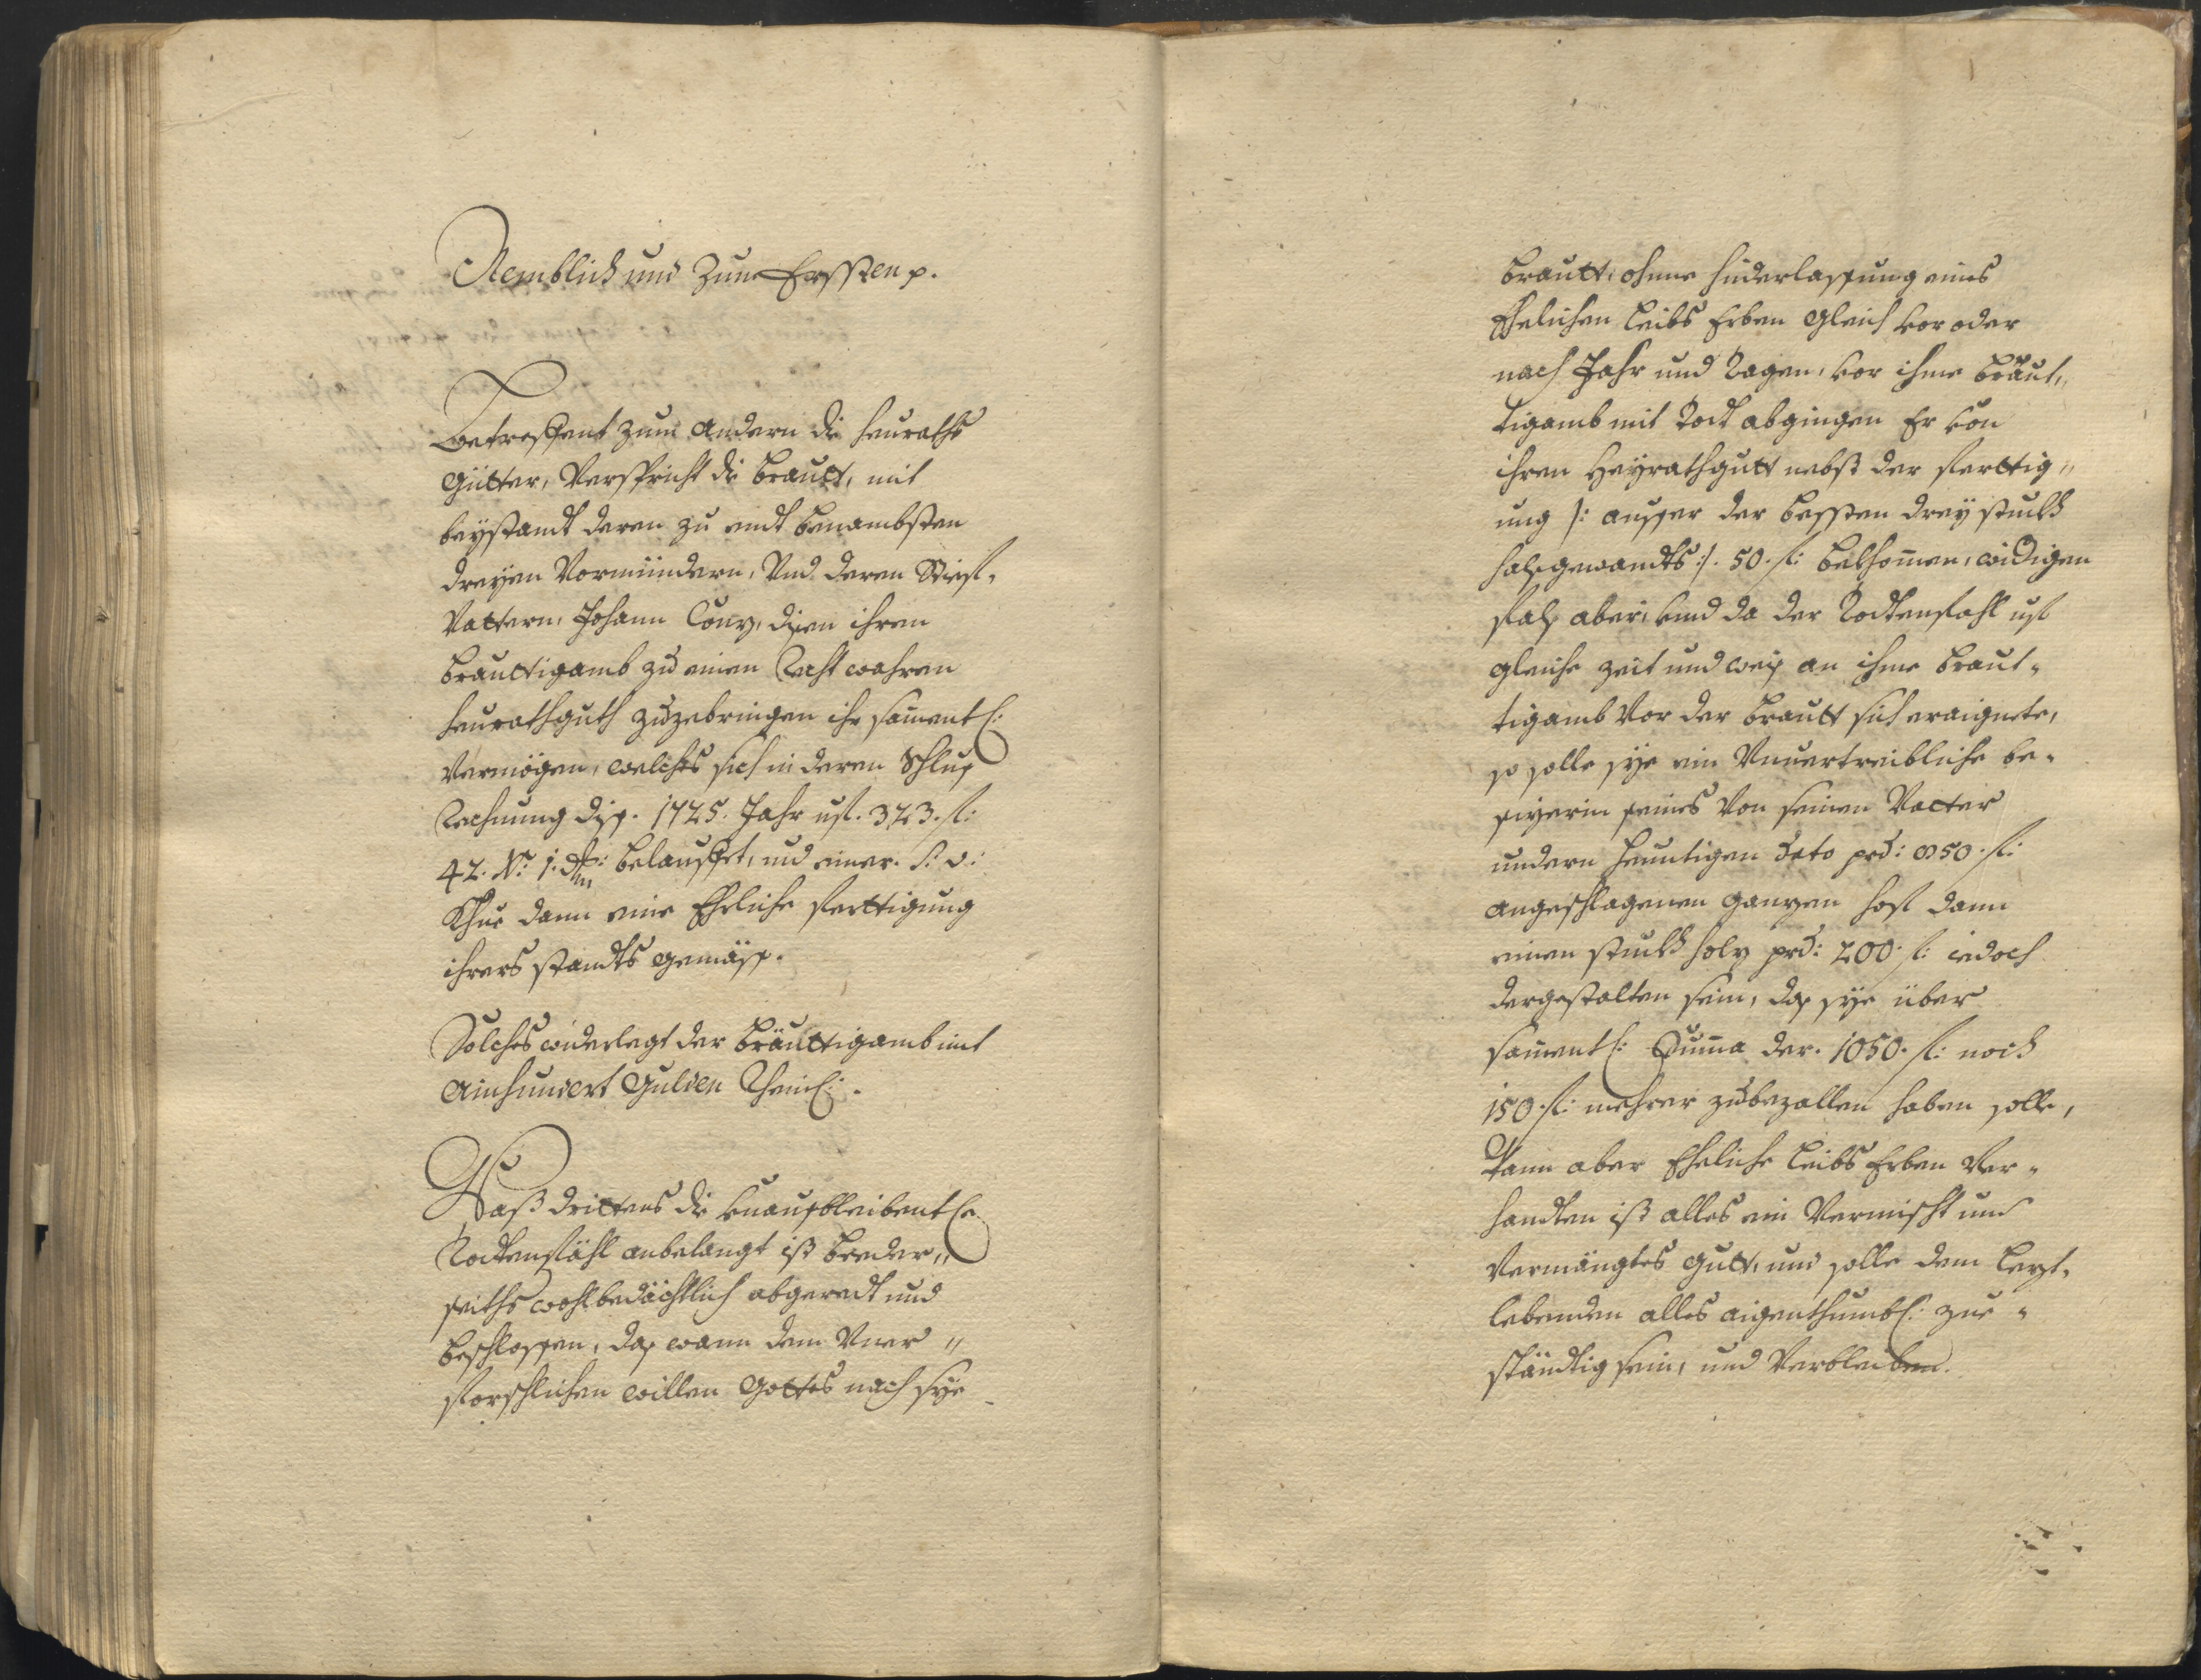 Nemblich und Zum Erssten p.
Betreffent zum andern die heuraths
gütter, Verspricht die brautt, mit
beystandt deren zu endt benambsten
dreyen Vormündern, Und deren Stieff-
Vattern, Johann disen ihren
brauttigamb zu einen Recht wahren
heurathguth zuzebringen ihr samentl:
Vermögen, welches sich in deren Schlus
Rechnung diss. 1725. Jahr uf. 323. fl:
42. Xr: 1. belauffet, und einer. S: v:
Khue dann eine Ehrliche ferttigung
ihrers standts gemäss.
Solches widerlegt der bräuttigamb mit
Ainhundert Gulden Rheinl:.
Waß drittens die Unausbleibentl:
Todtenfähl anbelangt ist beeder„
seiths wohlbedächtlich abgeredt und
beschlossen, das wann dem Uner„
forschlichen willen Gottes nach sye
brautt, ohnne hinderlassung eines
Ehelichen leibs Erben gleich vor oder
nach Jahr und Tagen, vor ihme bräut„
tigamb mit Todt abgingen Er von
ihren Heyrathgutt nebst der ferttig„
ung /: ausser der bessten drey stuckh
halsgewandts :/. 50. fl: bekhommen, widigen
fahls aber, und da der Todtenfahl uf
gleiche zeit und weis an ihme braut-
tigamb Vor der brautt sich eraignete,
so solle sye ein Unuertreibliche be-
sizerin seines Von seinen Vatter
undern heuntigen dato prd: 850. fl:
angeschlagenen ganzen hoff dann
einen stuckh holz prd: 200. fl: iedoch
dergestalten sein, das sye über
samentl: Summa der. 1050. fl: noch
150. fl: mehrer zubezallen haben solle,
Wann aber Eheliche leibs Erben Ver-
handten ist alles ein Vermischt und
Vermängtes gutt, und solle dem lezt-
lebenden alles aigenthumbl: zue-
ständtig sein, und Verbleiben.